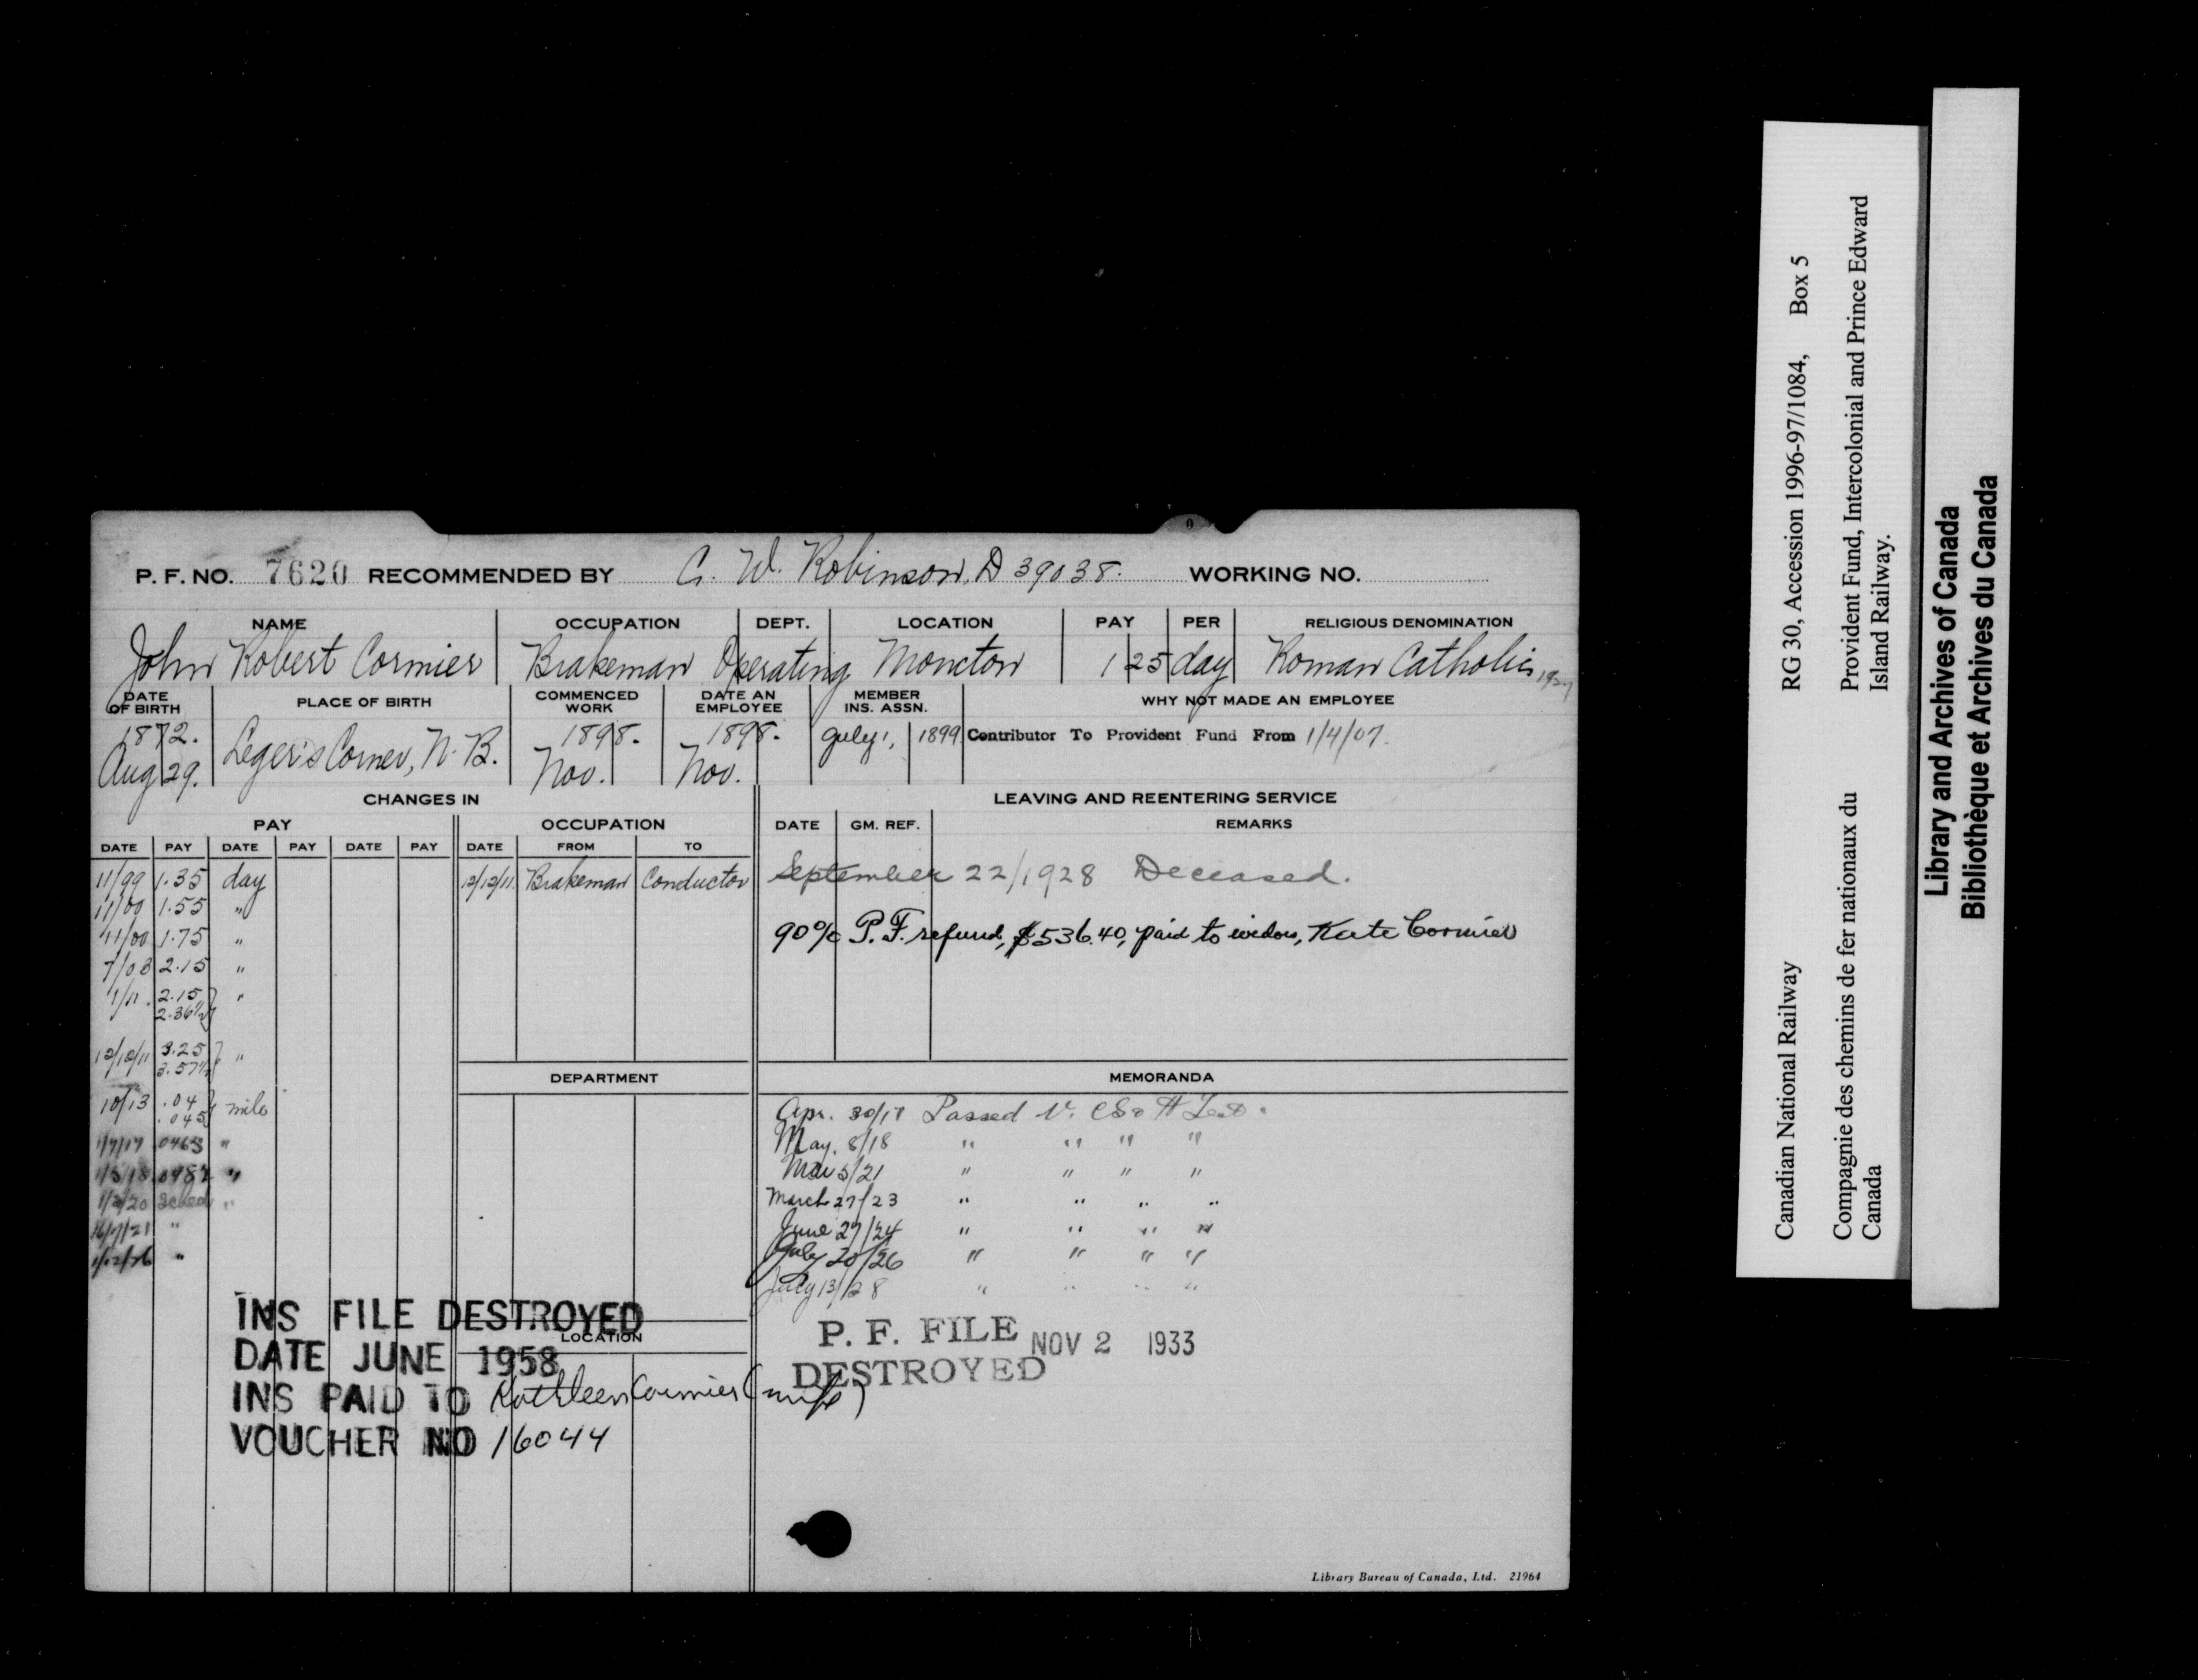 P. F. NO. 7620 RECOMMENDED BY C. W. Robinson, D 39038. WORKING NO.
NAME OCCUPATION DEPT. LOCATION PAY PER RELIGIOUS DENOMINATION
John Robert Cormier Brakeman Operating Moncton 1 25 day Roman Catholic
DATE OF BIRTH PLACE OF BIRTH COMMENCED WORK DATE AN EMPLOYEE MEMBER INS. ASSN. WHY NOT MADE AN EMPLOYEE
1872. Aug 29. Leger's Corner, N. B. 1898. Nov. 1898. Nov. July 1, 1899 Contributor To Provident Fund From 1/4/07.
CHANGES IN
PAY OCCUPATION
DATE PAY DATE PAY DATE PAY DATE FROM TO
11/99 1.35 day 12/12/11 Brakeman Conductor
11/00 1.55 "
11/00 1.75 "
7/08 2.15 "
1/11 . 2.15 "
2.36½
12/12/11 3.25 "
3.57½
10/13 .04 mile
.045
1/7/17 .0463 "
1/3/20 Sched "
16/7/21 "
"
DEPARTMENT
LOCATION
LEAVING AND REENTERING SERVICE
DATE GM. REF. REMARKS
September 22/1928 Deceased.
90% P. F. refund, $536.40, paid to widow, Kate Cormier
MEMORANDA
Apr. 30/17 Passed V. CS & H Test.
May. 8/18 " " " "
Mar 5/21 " " " "
March 27/23 " " " "
June 27/24 " " " "
July 20/26 " " " "
July 13/28 " " " "
INS FILE DESTROYED
DATE JUNE 1958
INS PAID TO Kathleen Cormier (wife)
VOUCHER NO 16044
P. F. FILE DESTROYED NOV 2 1933
Library Bureau of Canada, Ltd. 21964
Canadian National Railway RG 30, Accession 1996-97/1084, Box 5
Compagnie des chemins de fer nationaux du Canada
Provident Fund, Intercolonial and Prince Edward Island Railway.
Library and Archives of Canada
Bibliothèque et Archives du Canada